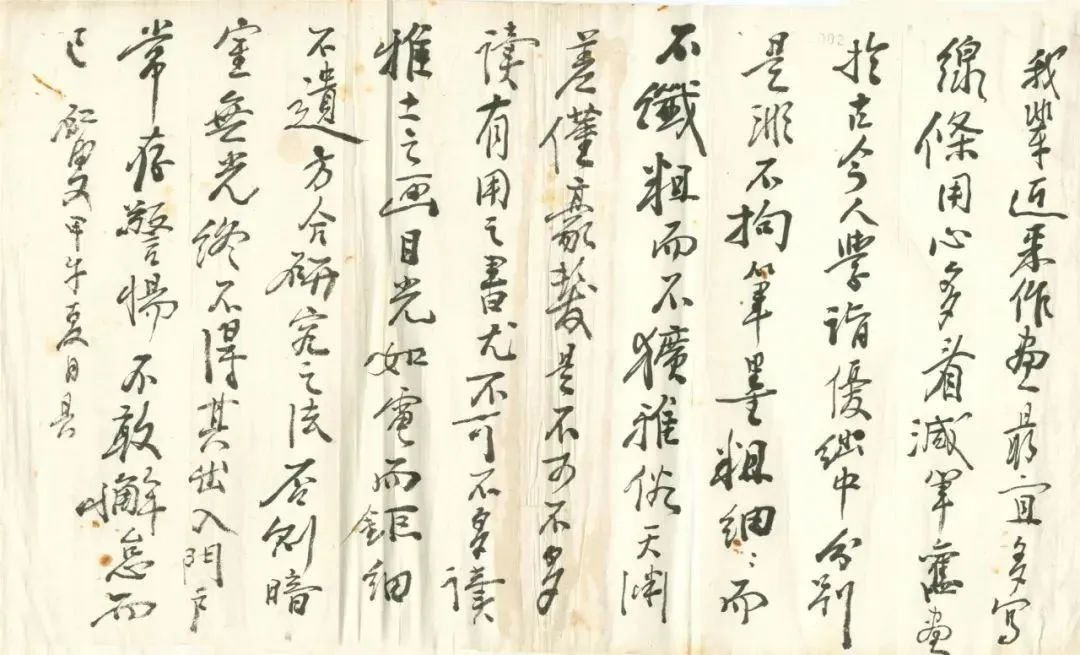 我輩近来作畫最宜多寫
線條用心多看減筆舊畫
於古今人學詣優絀中分別
是非不拘筆墨粗細〻而
不纖粗而不獷雅俗天淵
差僅豪髮是不可不多
讀有用之書尤不可不多讀
雅士之画目光如電而鉅細
不遺方合研究之法否則暗
室無光終不得其出入門戶
常存警惕不敢懈怠而
已 虹叟 甲午夏日具